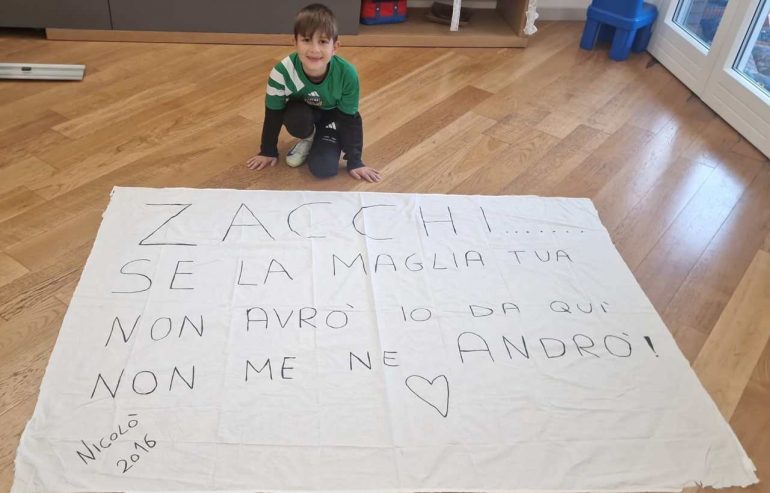 ZACCHI.......
SE LA MAGLIA TUA
NON AVRÒ IO DA QUI
NON ME NE ANDRÒ!
NICOLÒ
2016